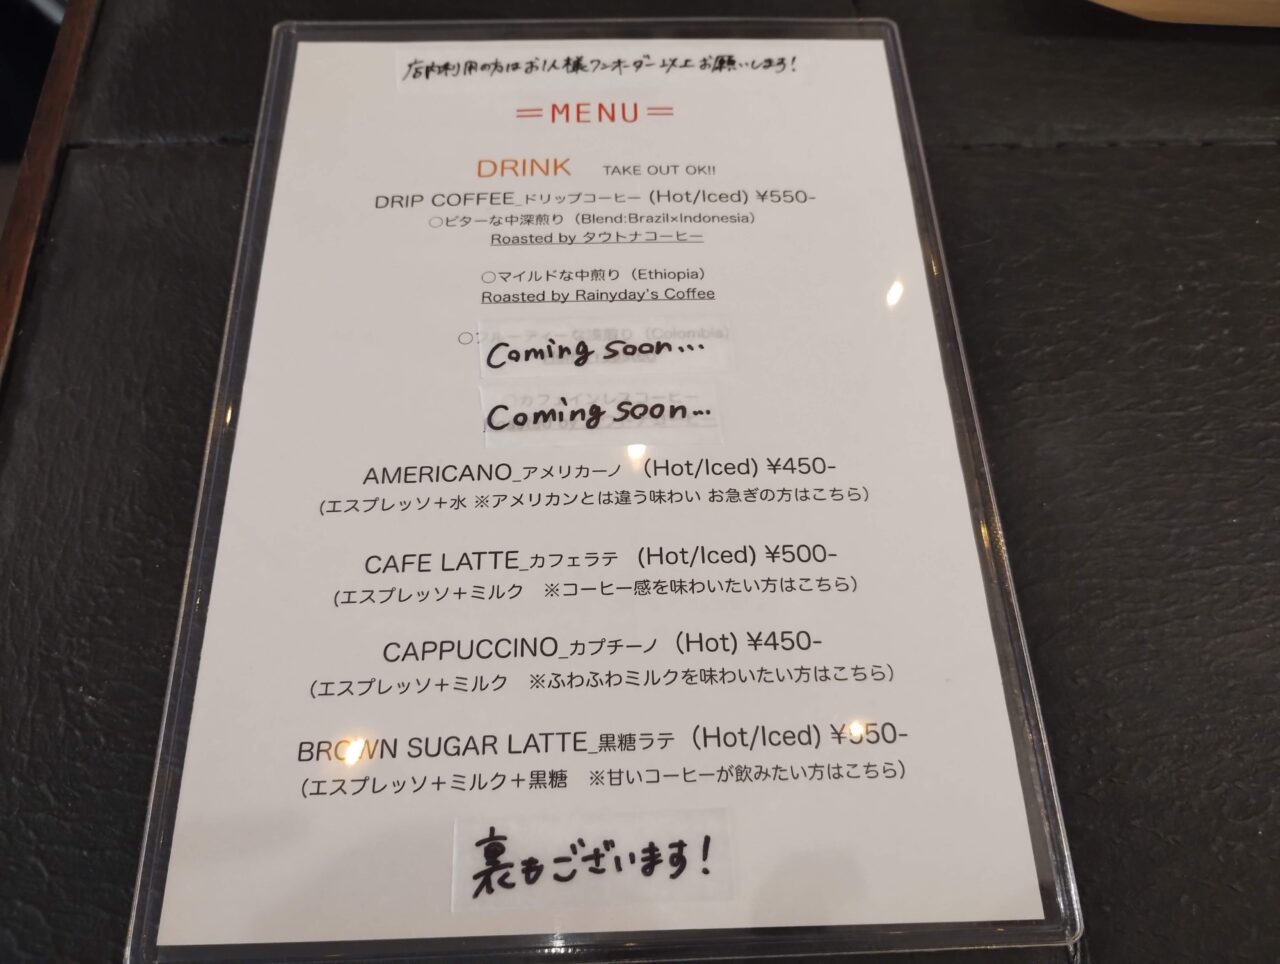 店内利用の方はお1人様ワンオーダー以上お願いします！
=MENU=
DRINK TAKE OUT OK!!
DRIP COFFEE_ドリップコーヒー (Hot/Iced) ¥550-
○ビターな中深煎り（Blend:Brazil×Indonesia）
Roasted by タウトナコーヒー
○マイルドな中煎り（Ethiopia）
Roasted by Rainyday's Coffee
○フルーティーな浅煎り（Colombia）
Coming soon...
○カフェインレスコーヒー
Coming soon...
AMERICANO_アメリカーノ (Hot/Iced) ¥450-
(エスプレッソ＋水 ※アメリカンとは違う味わい お急ぎの方はこちら)
CAFE LATTE_カフェラテ (Hot/Iced) ¥500-
(エスプレッソ＋ミルク ※コーヒー感を味わいたい方はこちら)
CAPPUCCINO_カプチーノ (Hot) ¥450-
(エスプレッソ＋ミルク ※ふわふわミルクを味わいたい方はこちら)
BROWN SUGAR LATTE_黒糖ラテ (Hot/Iced) ¥550-
(エスプレッソ＋ミルク＋黒糖 ※甘いコーヒーが飲みたい方はこちら)
裏もございます！